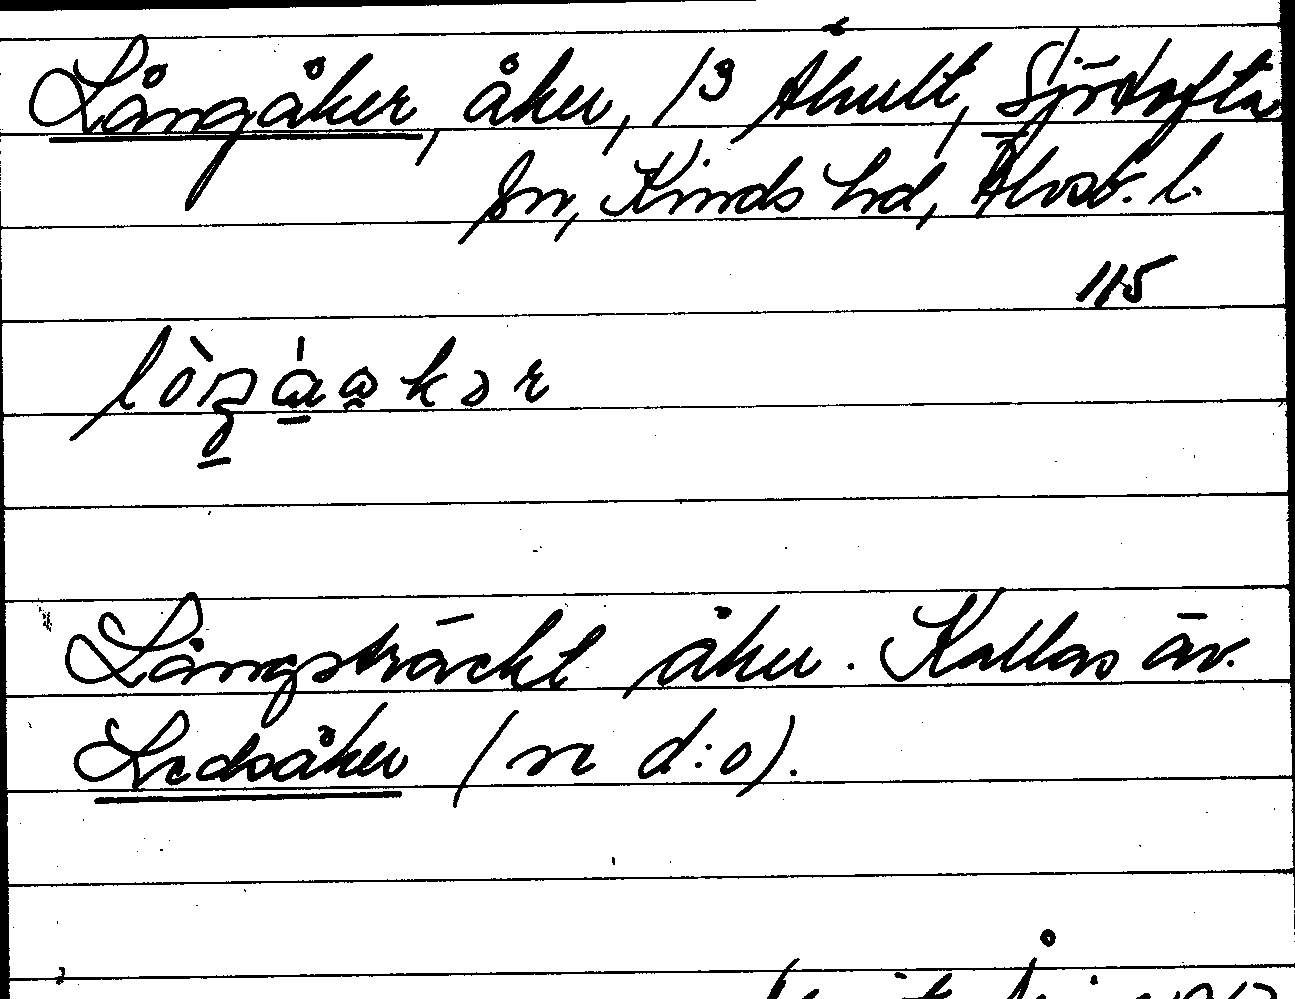 Långåker, åker, /3 Ahult, Sjötofta
sn, Kinds hd, Älvsb. l.
115
Långsträckt åker. Kallas äv.
Ledsåker (se d:o).